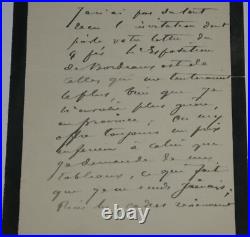 Je n'ai pas du tout
reçu l'invitation dont
parle votre lettre du
9 fév L'Exposition
de Bordeaux est de
celles qui me
le plus bien que je
n'envoie plus guère,
en province, on m'y
offre toujours un prix
inférieur à celui que
je demande de mes
tableaux, ce qui fait
que je n'y vends jamais;
les cadres reviennent